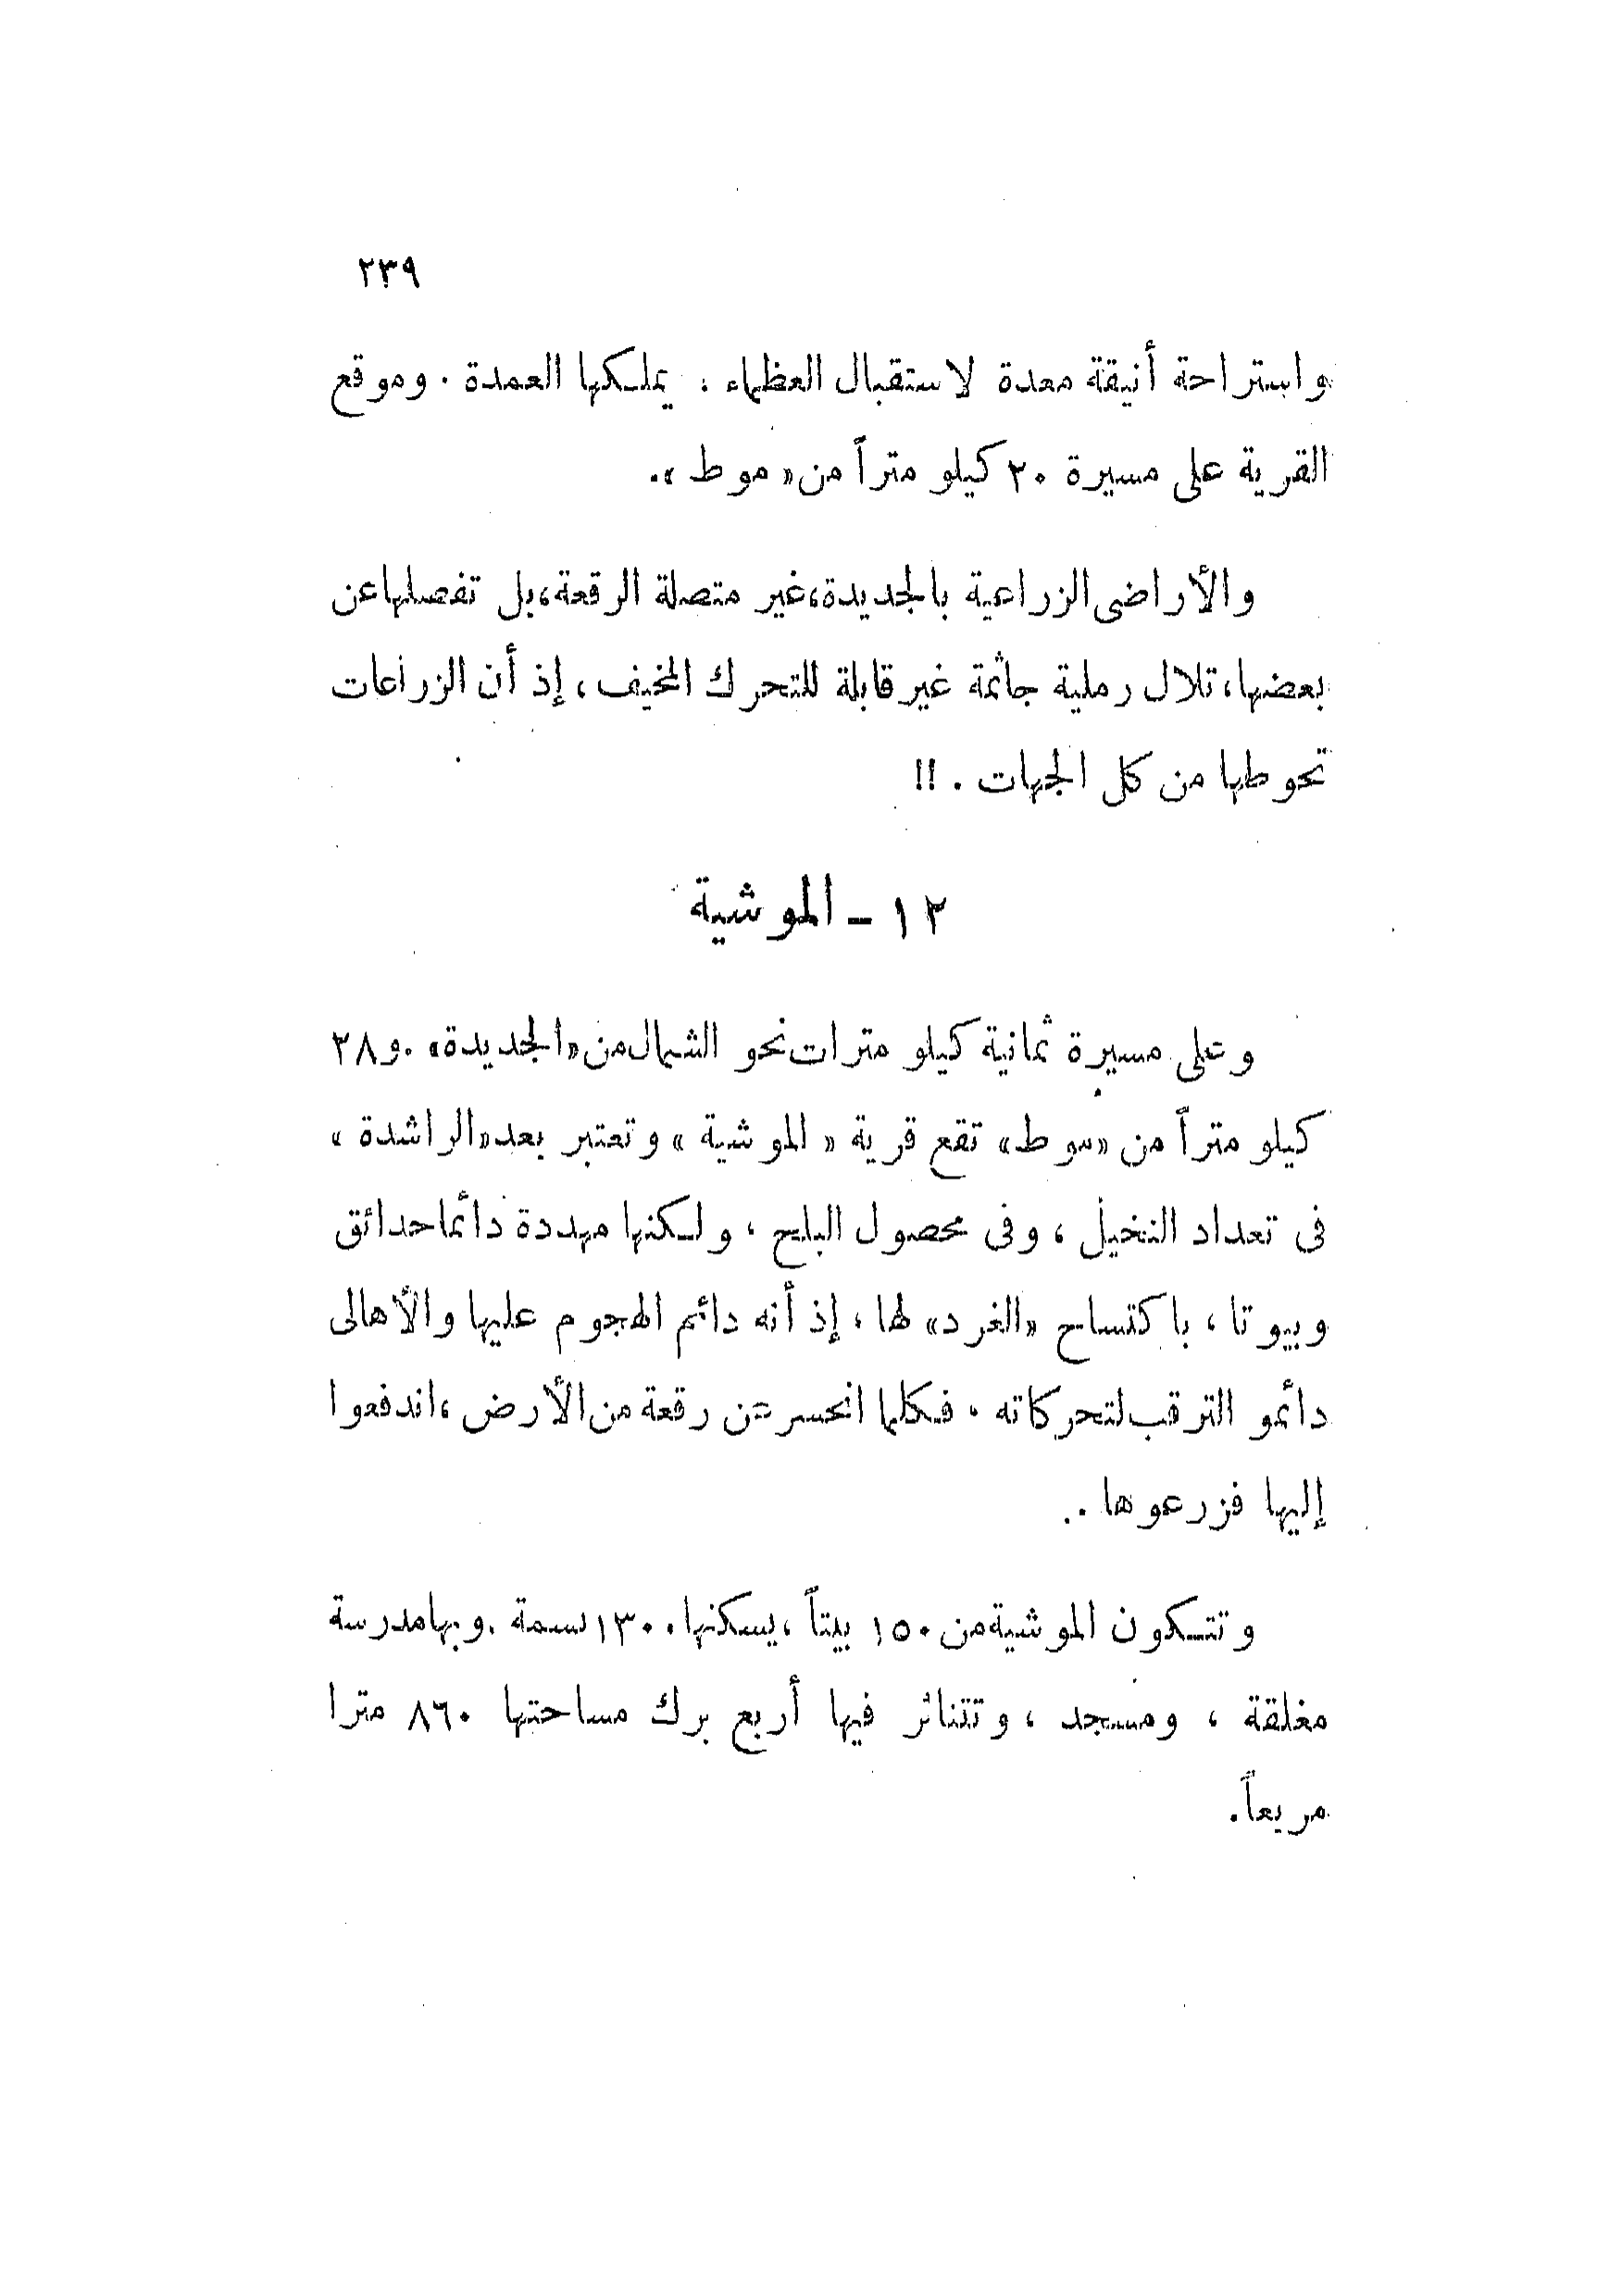 ٢٣٩
واستراحة أنيقة معدة لاستقبال العظماء ، يملكها العمدة . وموقع
القرية على مسيرة ٢٠ كيلو متراً من « موط » .
والأراضى الزراعية بالجديدة، غير متصلة الرقعة، بل تفصلها عن
بعضها، تلال رملية جاثمة غير قابلة للتحرك المخيف ، إذ أن الزراعات
تحوطها من كل الجهات . !!
١٢ - الموشية
وعلى مسيرة ثمانية كيلو مترات نحو الشمال من «الجديدة» . و٢٨
كيلو متراً من «موط» تقع قرية « الموشية » وتعتبر بعد «الراشدة »
فى تعداد النخيل ، وفى محصول البلح ، ولكنها مهددة دائما حدائق
وبيوتا ، باكتساح «الغرد» لها ، إذ أنه دائم الهجوم عليها والأهالى
دائمو الترقب لتحركاته . فكلما انحسر عن رقعة من الأرض ، اندفعوا
إليها فزرعوها ..
وتتكون الموشية من ١٥٠ بيتاً ، يسكنها ١٣٠٠ نسمة . وبها مدرسة
مغلقة ، ومسجد ، وتتناثر فيها أربع برك مساحتها ٨٦٠ مترا
مربعاً .